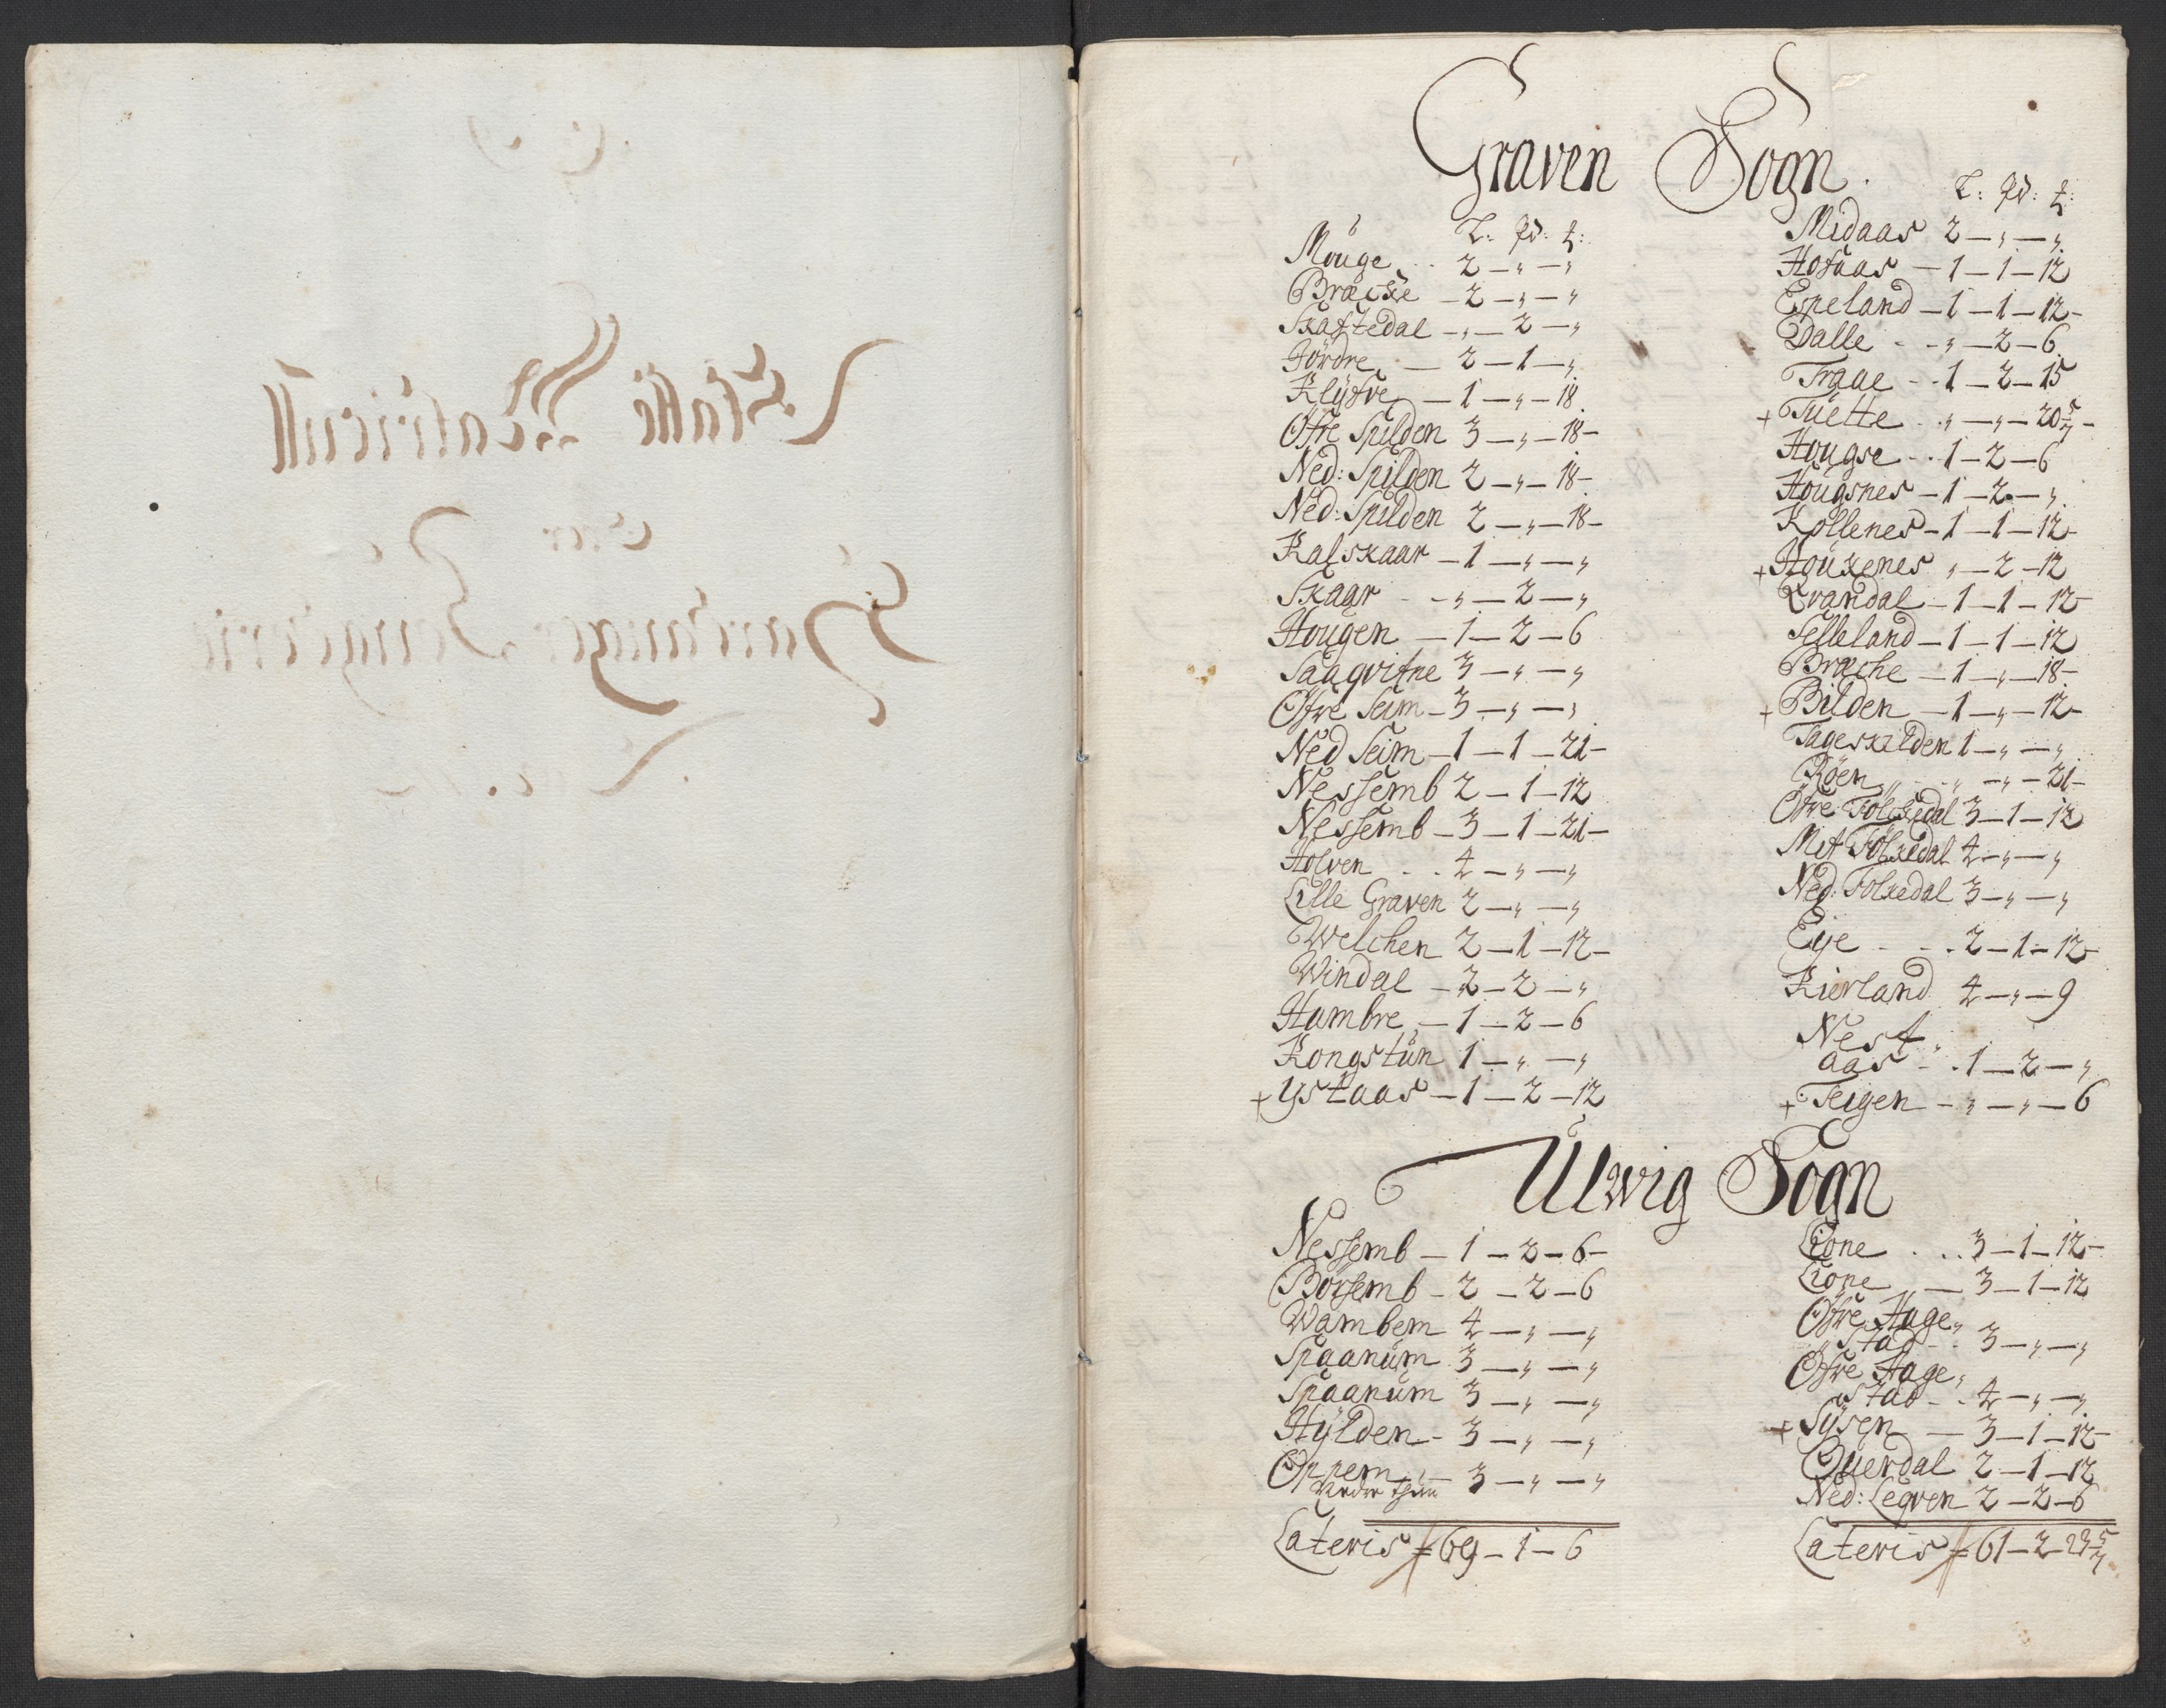 Graven Sogn.
L: pd: ℔:
Mouge . . 2 — „ — „
Bracke — 2 — „ — „
Skaftedal — „ — 2 — „
Jördre — 2 — 1 — „
Klyfve — 1 — „ — 18
Ofre Spilden 3 — „ — 18 —
Ned: Spilden 2 — „ — 18 —
Ned: Spilden 2 — „ — 18 —
Kalskaar — 1 — „ — „
Skaar - - „ — 2 — „
Hougen — 1 — 2 — 6
Saaqvitne 3 — „ — „
Ofre Seim — 3 — „ — „
Ned Seim — 1 — 1 — 21 —
Nessemb 2 — 1 — 12
Nessemb — 3 — 1 — 21 —
Holven . . 4 — „ — „
Lille Graven 2 — „ — „
Welchen 2 — 1 — 12 —
Windal — 2 — 2 — „
Hambre — 1 — 2 — 6
Kongstun 1 — „ — „
+ Ystaas — 1 — 2 — 12
L: pd: ℔:
Midaas 2 — „ — „
Hofaas — 1 — 1 — 12
Espeland — 1 — 1 — 12 —
Dalle - - „ — 2 — 6
Traae - - 1 — 2 — 15
+ Tuette . „ — „ — 20 5/7 —
Hougse . . 1 — 2 — 6
Hougsnes — 1 — 2 — „
Kollenes — 1 — 1 — 12
+ Houxenes „ — 2 — 12
Qvandal — 1 — 1 — 12
Selleland — 1 — 1 — 12
Brache — 1 — „ — 18 —
+ Bilden — 1 — „ — 12 —
Tageskilden 1 — „ — „
Röen - - „ — „ — 21 —
Öfre Folckedal 3 — 1 — 12
Mit Folkedal 4 — „ — „
Ned: Folkedal 3 — „ — „
Eye - - . 2 — 1 — 12
Kierland 4 — „ — 9
Nest„
aas - . 1 — 2 — „
+ Teigen — „ — „ — 6
Ulwig Sogn
Nessemb — 1 — 2 — 6 —
Borsemb — 2 — 2 — 6
Wambem 4 — „ — „
Spaanum 3 — „ — „
Spaanum 3 — „ — „
Hylden — 3 — „ — „
Oppem — 3 — „ — „
Nedre thun
Lateris 69 — 1 — 6
Lione . . . 3 — 1 — 12 —
Lione — 3 — 1 — 12
Öfre Hage„
stad - . 3 — „ — „
Ofre Hage„
stad - . 4 — „ — „
+ Sysen — 3 — 1 — 12 —
Querdal 2 — 1 — 12
Ned: Leqven 2 — 2 — 6
Lateris 61 — 2 — 23 5/7